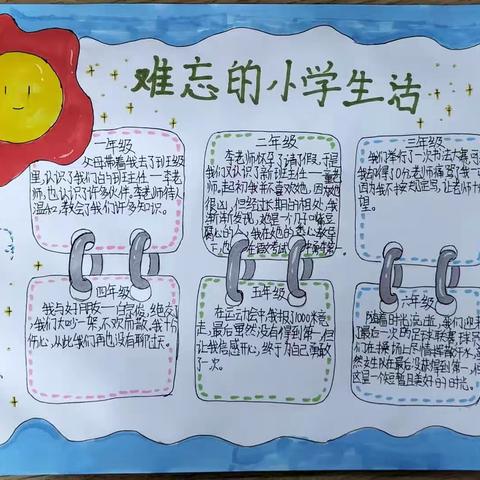 难忘的小学生活
一年级
父母带着我去了班级
里,认识了我们的班主任一李老
师,也认识了许多伙伴。李老师待人
温和,教会了我们许多知识。
二年级
李老师怀孕了请了假,于是
我们又认识了新班主任一董老
师,起初我并不喜欢她,因为她
很凶,但经过长期的相处,我
渐渐发现,她是一个刀子嘴豆
腐心的人,我在她的
三年级
我们举行了一次书法大赛,
因为我不按规矩写,让老师
望。
四年级
我与好朋友一白宇恒,绝交了
,我们大吵一架,不欢而散,我十分
伤心,从此我们再也没有聊过天。
五年级
在运动会中,我报了1000米竞
走,最后虽然没有得到第一,但
让我倍感开心,终于为自己
了一次。
六年级
随着时光流逝,我们迎来
了最后一次的足球联赛,
们在操场上尽情挥洒汗水,虽
然女生队在最后没获得到第一,但
这是一个短暂且美好的时光。